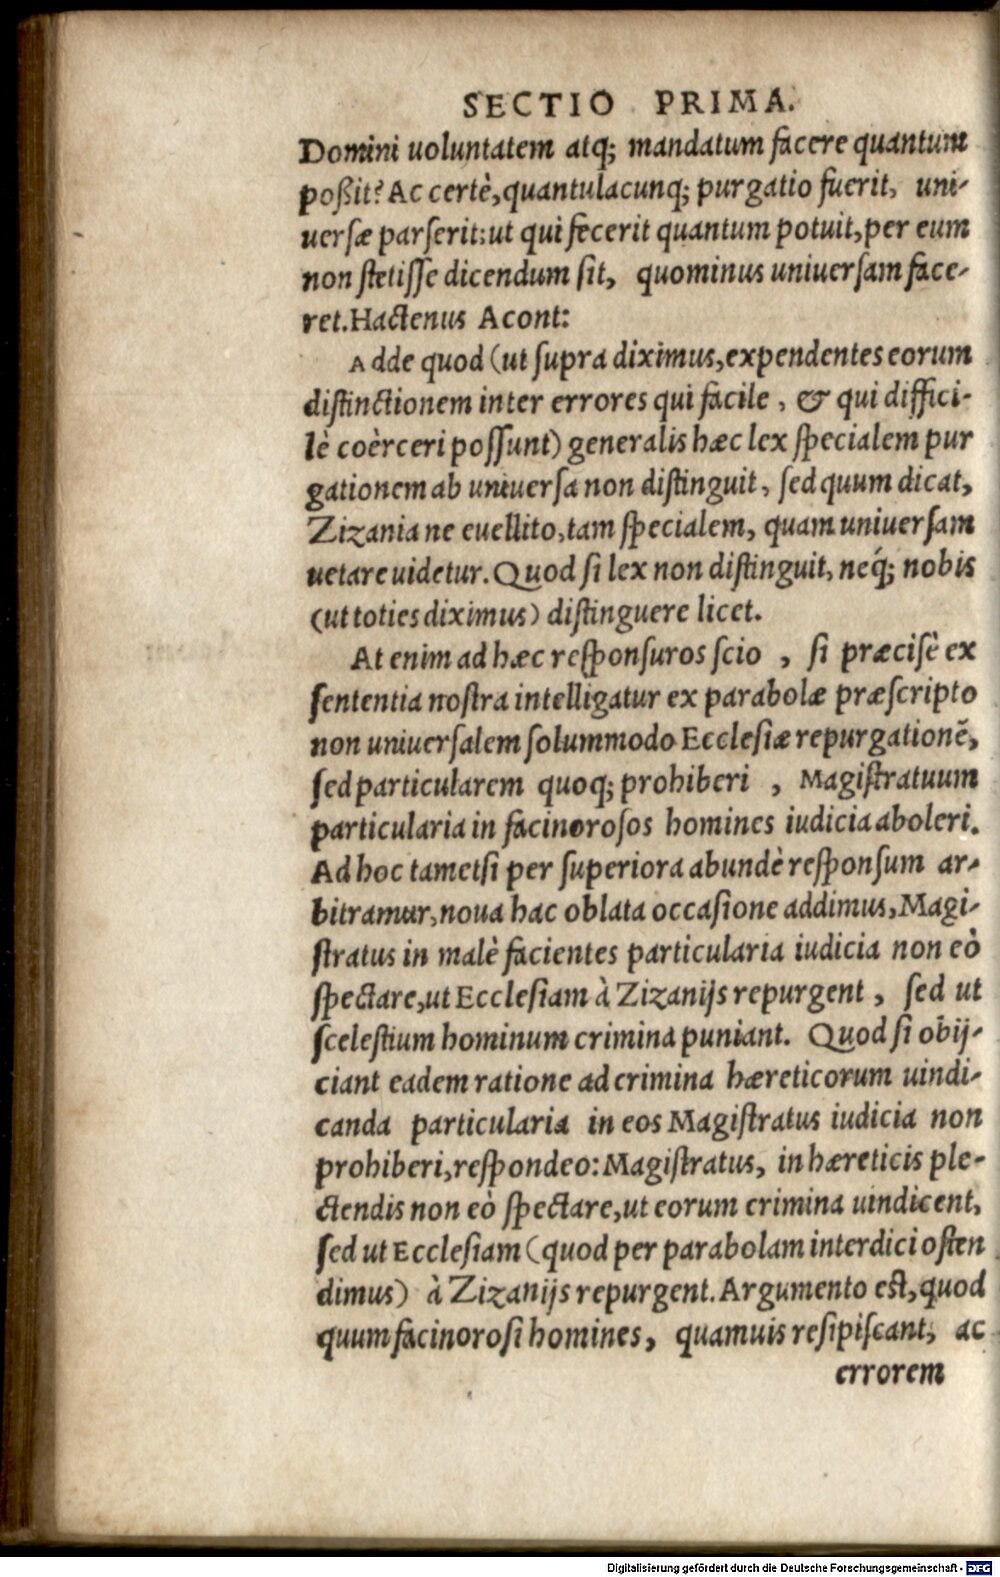 SECTIO PRIMA.
Domini uoluntatem atq; mandatum facere quantum
poßit? Ac certè, quantulacunq; purgatio fuerit, uni-
uersæ pars erit: ut qui fecerit quantum potuit, per eum
non stetisse dicendum sit, quominus uniuersam face-
ret. Hactenus Acont:
Adde quod (ut supra diximus, expendentes eorum
distinctionem inter errores qui facile, & qui diffici-
lè coèrceri possunt) generalis hæc lex specialem pur
gationem ab uniuersa non distinguit, sed quum dicat,
Zizania ne euellito, tam specialem, quam uniuersam
uetare uidetur. Quod si lex non distinguit, neq́; nobis
(ut toties diximus) distinguere licet.
At enim ad hæc responsuros scio, si præcisè ex
sententia nostra intelligatur ex parabolæ præscripto
non uniuersalem solummodo Ecclesiæ repurgationẽ,
sed particularem quoq; prohiberi, Magistratuum
particularia in facinorosos homines iudicia aboleri.
Ad hoc tametsi per superiora abundè responsum ar-
bitramur, noua hac oblata occasione addimus, Magi-
stratus in malè facientes particularia iudicia non eò
spectare, ut Ecclesiam à Zizanijs repurgent, sed ut
scelestium hominum crimina puniant. Quod si obij-
ciant eadem ratione ad crimina hæreticorum uindi-
canda particularia in eos Magistratus iudicia non
prohiberi, respondeo: Magistratus, in hæreticis ple-
ctendis non eò spectare, ut eorum crimina uindicent,
sed ut Ecclesiam (quod per parabolam interdici osten
dimus) à Zizanijs repurgent. Argumento est, quod
quum facinorosi homines, quamuis resipiscant, ac
errorem
Digitalisierung gefördert durch die Deutsche Forschungsgemeinschaft - DFG